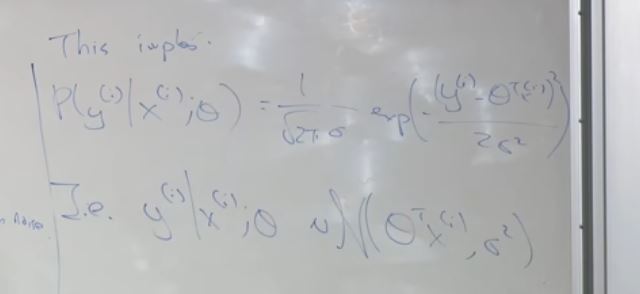 This implies.
P(y^(i) | x^(i); θ) = 1/(√2π σ) exp(-(y^(i) - θ^T x^(i))² / 2σ²)
I.e. y^(i) | x^(i); θ ~ N(θ^T x^(i), σ²)